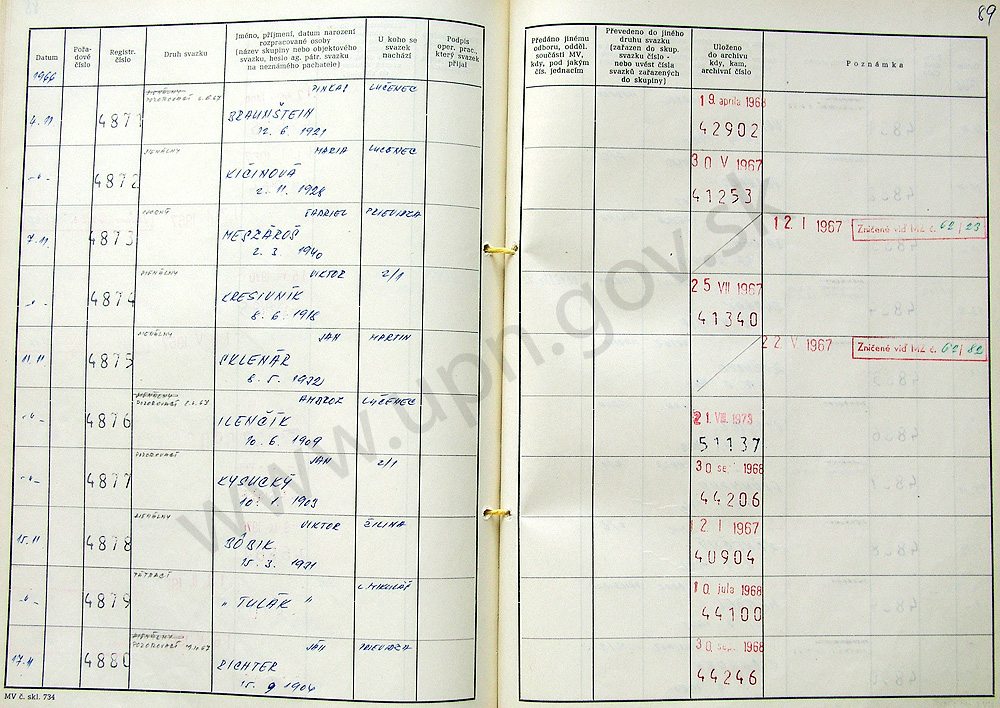 89
Datum
Pořa-
dové
číslo
Registr.
číslo
Druh svazku
Jméno, příjmení, datum narození
rozpracované osoby
(název skupiny nebo objektového
svazku, heslo ag. pátr. svazku
na neznámého pachatele)
U koho se
svazek
nachází
Podpis
oper. prac.,
který svazek
přijal
Předáno jinému
odboru, odděl.
součásti MV,
kdy, pod jakým
čís. jednacím
Převedeno do jiného
druhu svazku
(zařazen do skup.
svazku číslo -
nebo uvést čísla
svazků zařazených
do skupiny)
Uloženo
do archivu
kdy, kam,
archivní číslo
Poznámka
1966
PINKAS LUČENEC
4.11 4871 BRAUNŠTEIN
12. 6. 1921
19. apríla 1968
42902
MARIA LUČENEC
-"- 4872 KÍČINOVÁ
2. 11. 1928
30 V 1967
41253
GABRIEL PRIEVIDZA
7.11 4873 MESZÁROŠ
2. 3. 1940
12. I 1967 Zničené viď MZ č. 62/23
VIKTOR 2/1
-"- 4874 KRESIVNÍK
8. 6. 1918
25 VII 1967
41340
JÁN MARTIN
11.11 4875 SKLENÁR
8. 5. 1922
22 V 1967 Zničené viď MZ č. 62/82
POZOROVACÍ
AMBROZ LUČENEC
-"- 4876 ILENČÍK
20. 6. 1909
21. VIII. 1973
51137
POZOROVACÍ JÁN 2/1
-"- 4877 KYSUCKÝ
10. 1. 1903
30 sept. 1968
44206
VIKTOR ŽILINA
15.11 4878 BÔBIK
15. 3. 1921
12. I 1967
40904
PÁTRACÍ L. MIKULÁŠ
-"- 4879 "TULÁK"
10. júla 1968
44100
POZOROVACÍ
JÁN PRIEVIDZA
17.11 4880 RICHTER
15. 9. 1904
30. sept. 1968
44246
MV č. skl. 734
www.upn.gov.sk